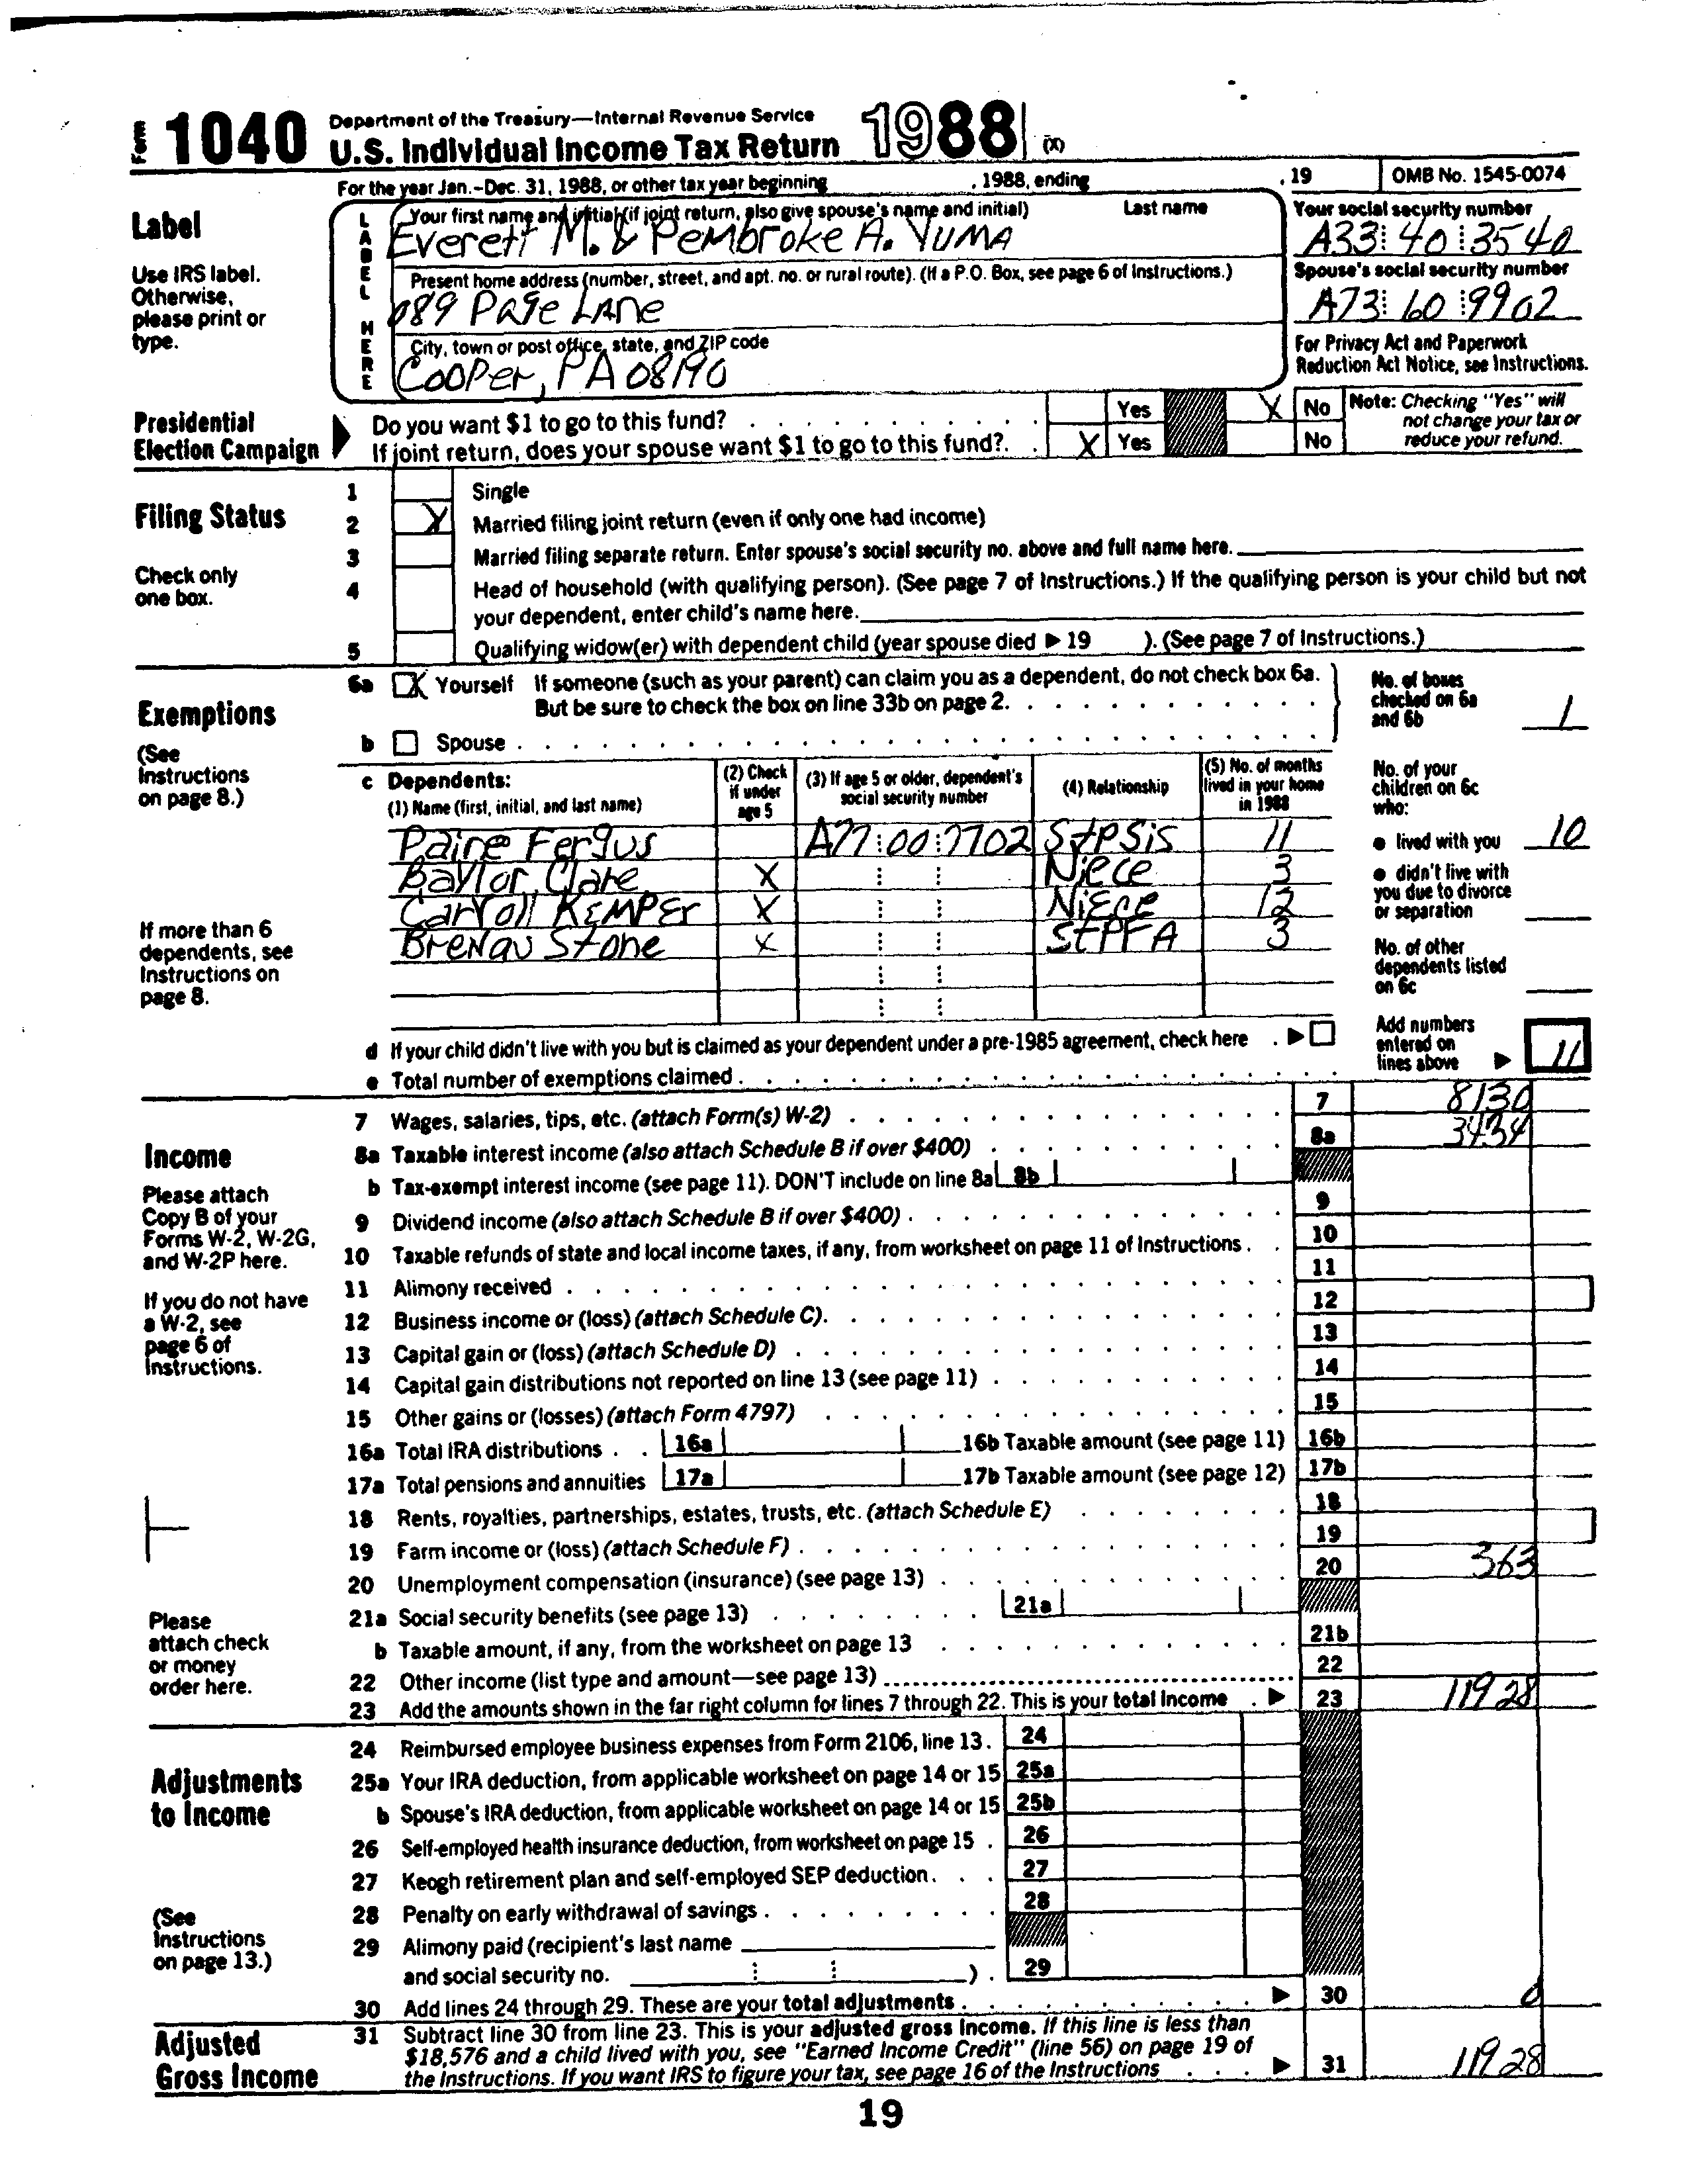 Form 1040 Department of the Treasury—Internal Revenue Service
U.S. Individual Income Tax Return 1988 (X)
For the year Jan.–Dec. 31, 1988, or other tax year beginning , 1988, ending , 19 OMB No. 1545-0074
Label
Use IRS label.
Otherwise,
please print or
type.
LABEL HERE
Your first name and initial (if joint return, also give spouse's name and initial) Last name
Everett M. & Pembroke A. YUMA
Your social security number
A33 40 3540
Present home address (number, street, and apt. no. or rural route). (If a P.O. Box, see page 6 of Instructions.)
089 Page Lane
Spouse's social security number
A73 60 9902
City, town or post office, state, and ZIP code
Cooper, PA 08190
For Privacy Act and Paperwork
Reduction Act Notice, see Instructions.
Presidential
Election Campaign
Do you want $1 to go to this fund? Yes X No
If joint return, does your spouse want $1 to go to this fund? X Yes No
Note: Checking "Yes" will
not change your tax or
reduce your refund.
Filing Status
Check only
one box.
1 Single
2 X Married filing joint return (even if only one had income)
3 Married filing separate return. Enter spouse's social security no. above and full name here.
4 Head of household (with qualifying person). (See page 7 of Instructions.) If the qualifying person is your child but not
your dependent, enter child's name here.
5 Qualifying widow(er) with dependent child (year spouse died ▶ 19 ). (See page 7 of Instructions.)
Exemptions
(See
Instructions
on page 8.)
If more than 6
dependents, see
Instructions on
page 8.
6a X Yourself If someone (such as your parent) can claim you as a dependent, do not check box 6a.
But be sure to check the box on line 33b on page 2.
b Spouse
No. of boxes
checked on 6a
and 6b 1
c Dependents:
(1) Name (first, initial, and last name)
(2) Check
if under
age 5
(3) If age 5 or older, dependent's
social security number
(4) Relationship
(5) No. of months
lived in your home
in 1988
Paine Fergus A77 00 7702 StPSis 11
Baylor Clare X Niece 3
Carroll Kemper X Niece 12
Brenau Stone X StPFA 3
No. of your
children on 6c
who:
● lived with you 10
● didn't live with
you due to divorce
or separation
No. of other
dependents listed
on 6c
d If your child didn't live with you but is claimed as your dependent under a pre-1985 agreement, check here ▶
e Total number of exemptions claimed
Add numbers
entered on
lines above ▶ 11
Income
Please attach
Copy B of your
Forms W-2, W-2G,
and W-2P here.
If you do not have
a W-2, see
page 6 of
Instructions.
Please
attach check
or money
order here.
7 Wages, salaries, tips, etc. (attach Form(s) W-2) 7 8130
8a Taxable interest income (also attach Schedule B if over $400) 8a 3434
b Tax-exempt interest income (see page 11). DON'T include on line 8a 8b
9 Dividend income (also attach Schedule B if over $400) 9
10 Taxable refunds of state and local income taxes, if any, from worksheet on page 11 of Instructions 10
11 Alimony received 11
12 Business income or (loss) (attach Schedule C) 12
13 Capital gain or (loss) (attach Schedule D) 13
14 Capital gain distributions not reported on line 13 (see page 11) 14
15 Other gains or (losses) (attach Form 4797) 15
16a Total IRA distributions 16a 16b Taxable amount (see page 11) 16b
17a Total pensions and annuities 17a 17b Taxable amount (see page 12) 17b
18 Rents, royalties, partnerships, estates, trusts, etc. (attach Schedule E) 18
19 Farm income or (loss) (attach Schedule F) 19
20 Unemployment compensation (insurance) (see page 13) 20 363
21a Social security benefits (see page 13) 21a
b Taxable amount, if any, from the worksheet on page 13 21b
22 Other income (list type and amount—see page 13) 22
23 Add the amounts shown in the far right column for lines 7 through 22. This is your total income ▶ 23 11928
Adjustments
to Income
(See
Instructions
on page 13.)
24 Reimbursed employee business expenses from Form 2106, line 13. 24
25a Your IRA deduction, from applicable worksheet on page 14 or 15 25a
b Spouse's IRA deduction, from applicable worksheet on page 14 or 15 25b
26 Self-employed health insurance deduction, from worksheet on page 15 26
27 Keogh retirement plan and self-employed SEP deduction 27
28 Penalty on early withdrawal of savings 28
29 Alimony paid (recipient's last name
and social security no. ) 29
30 Add lines 24 through 29. These are your total adjustments ▶ 30 0
Adjusted
Gross Income
31 Subtract line 30 from line 23. This is your adjusted gross income. If this line is less than
$18,576 and a child lived with you, see "Earned Income Credit" (line 56) on page 19 of
the Instructions. If you want IRS to figure your tax, see page 16 of the Instructions ▶ 31 11928
19